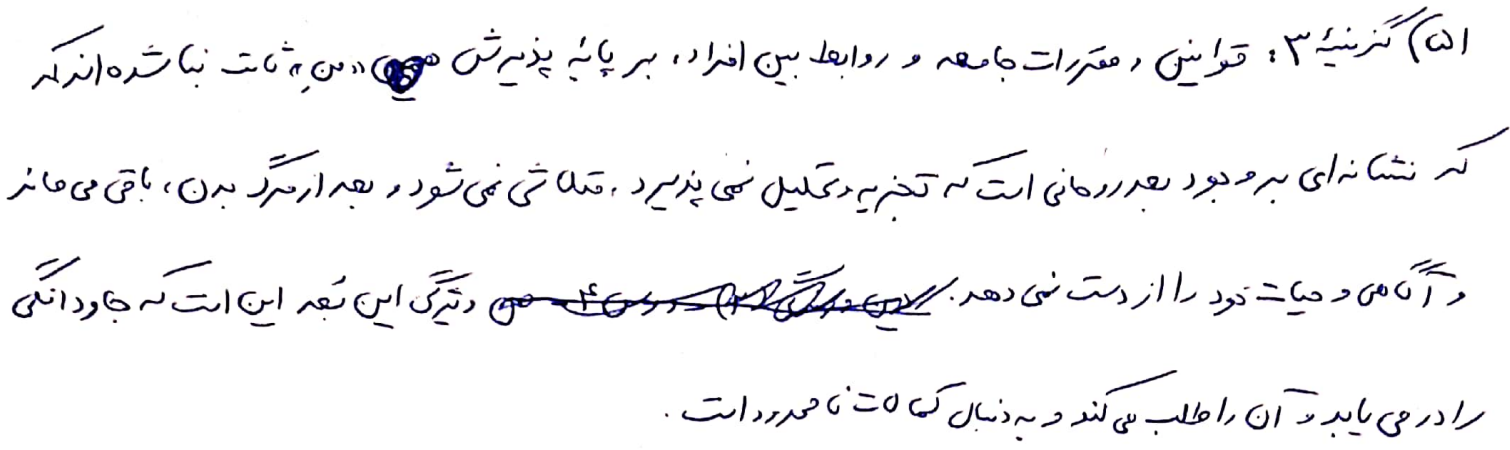 ۵۱) گزینهٔ ۳: قوانین و مقررات جامعه و روابط بین افراد، بر پایهٔ پذیرش «منِ» ثابت بنا شده‌اند که
که نشانه‌ای بر وجود بعد روحانی است که تجزیه و تحلیل نمی پذیرد، متلاشی نمی‌شود و بعد از مرگ بدن، باقی می ماند
و آگاهی و حیات خود را از دست نمی دهد. ویژگی این بُعد این است که جاودانگی
را در می یابد و آن را طلب می کند و به دنبال کمالات نامحدود است.